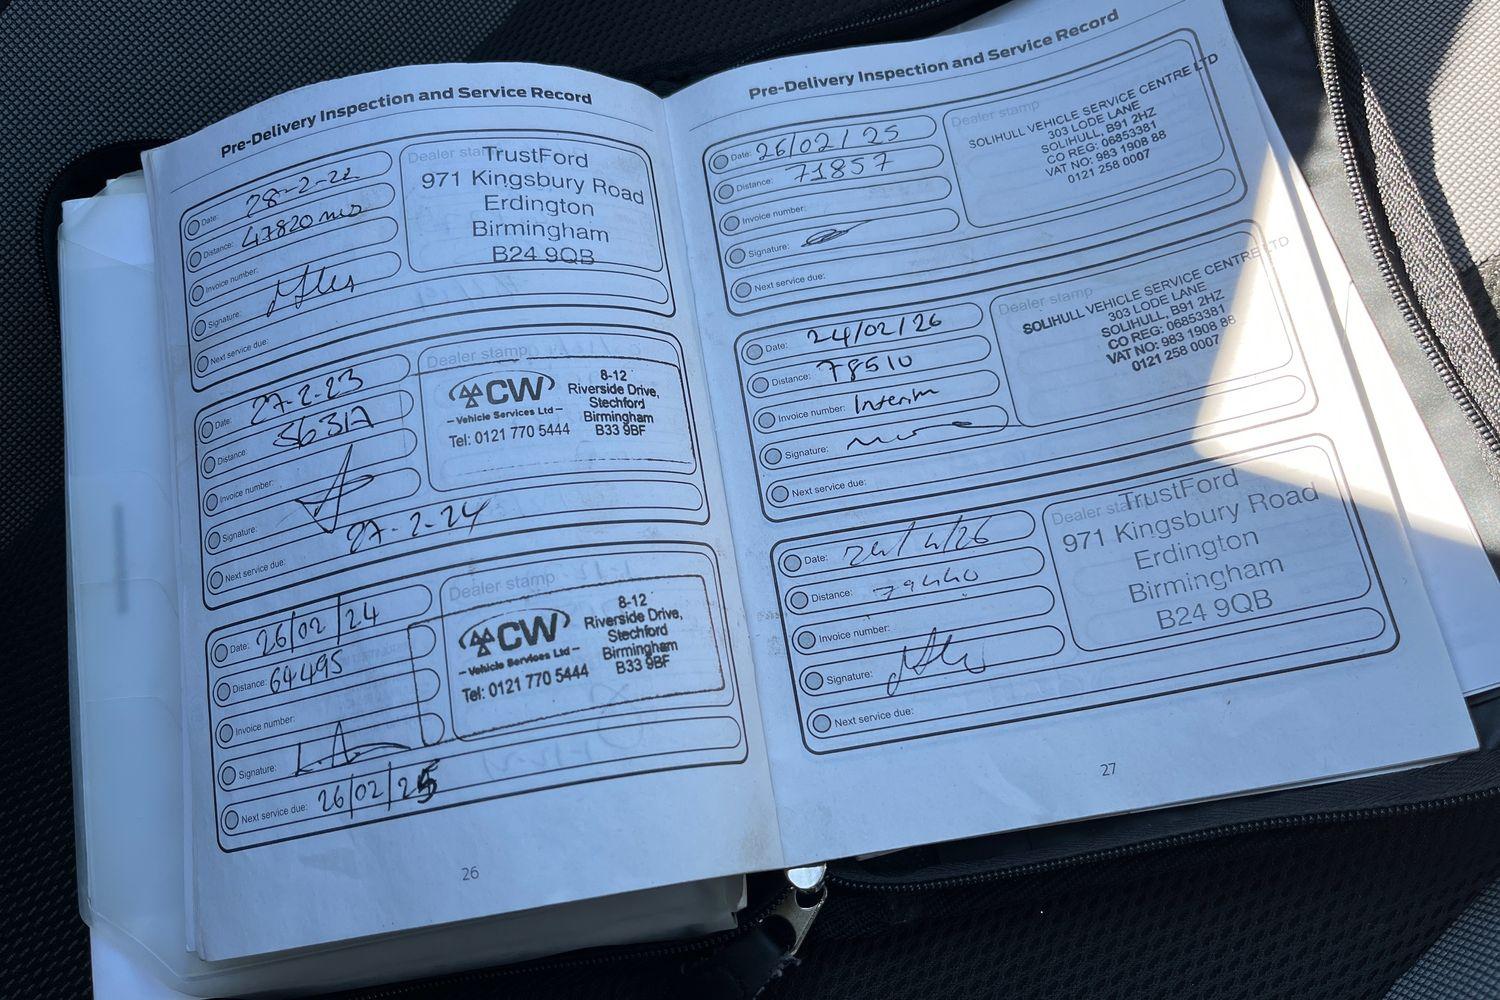 Pre-Delivery Inspection and Service Record
Date: 28-2-22
Distance: 47820
Invoice number:
Signature:
Next service due:
Dealer stamp
TrustFord
971 Kingsbury Road
Erdington
Birmingham
B24 9QB
Date: 27-2-23
Distance: 56317
Invoice number:
Signature:
Next service due: 27-2-24
Dealer stamp
CW
Vehicle Services Ltd
Tel: 0121 770 5444
8-12
Riverside Drive,
Stechford
Birmingham
B33 9BF
Date: 26/02/24
Distance: 64495
Invoice number:
Signature:
Next service due: 26/02/25
Dealer stamp
CW
Vehicle Services Ltd
Tel: 0121 770 5444
8-12
Riverside Drive,
Stechford
Birmingham
B33 9BF
26
Pre-Delivery Inspection and Service Record
Date: 26/02/25
Distance: 71857
Invoice number:
Signature:
Next service due:
Dealer stamp
SOLIHULL VEHICLE SERVICE CENTRE LTD
303 LODE LANE
SOLIHULL, B91 2HZ
CO REG: 06853381
VAT NO: 983 1908 88
0121 258 0007
Date: 24/02/26
Distance: 78510
Invoice number: Interim
Signature:
Next service due:
Dealer stamp
SOLIHULL VEHICLE SERVICE CENTRE LTD
303 LODE LANE
SOLIHULL, B91 2HZ
CO REG: 06853381
VAT NO: 983 1908 88
0121 258 0007
Date: 24/4/26
Distance: 79440
Invoice number:
Signature:
Next service due:
Dealer stamp
TrustFord
971 Kingsbury Road
Erdington
Birmingham
B24 9QB
27